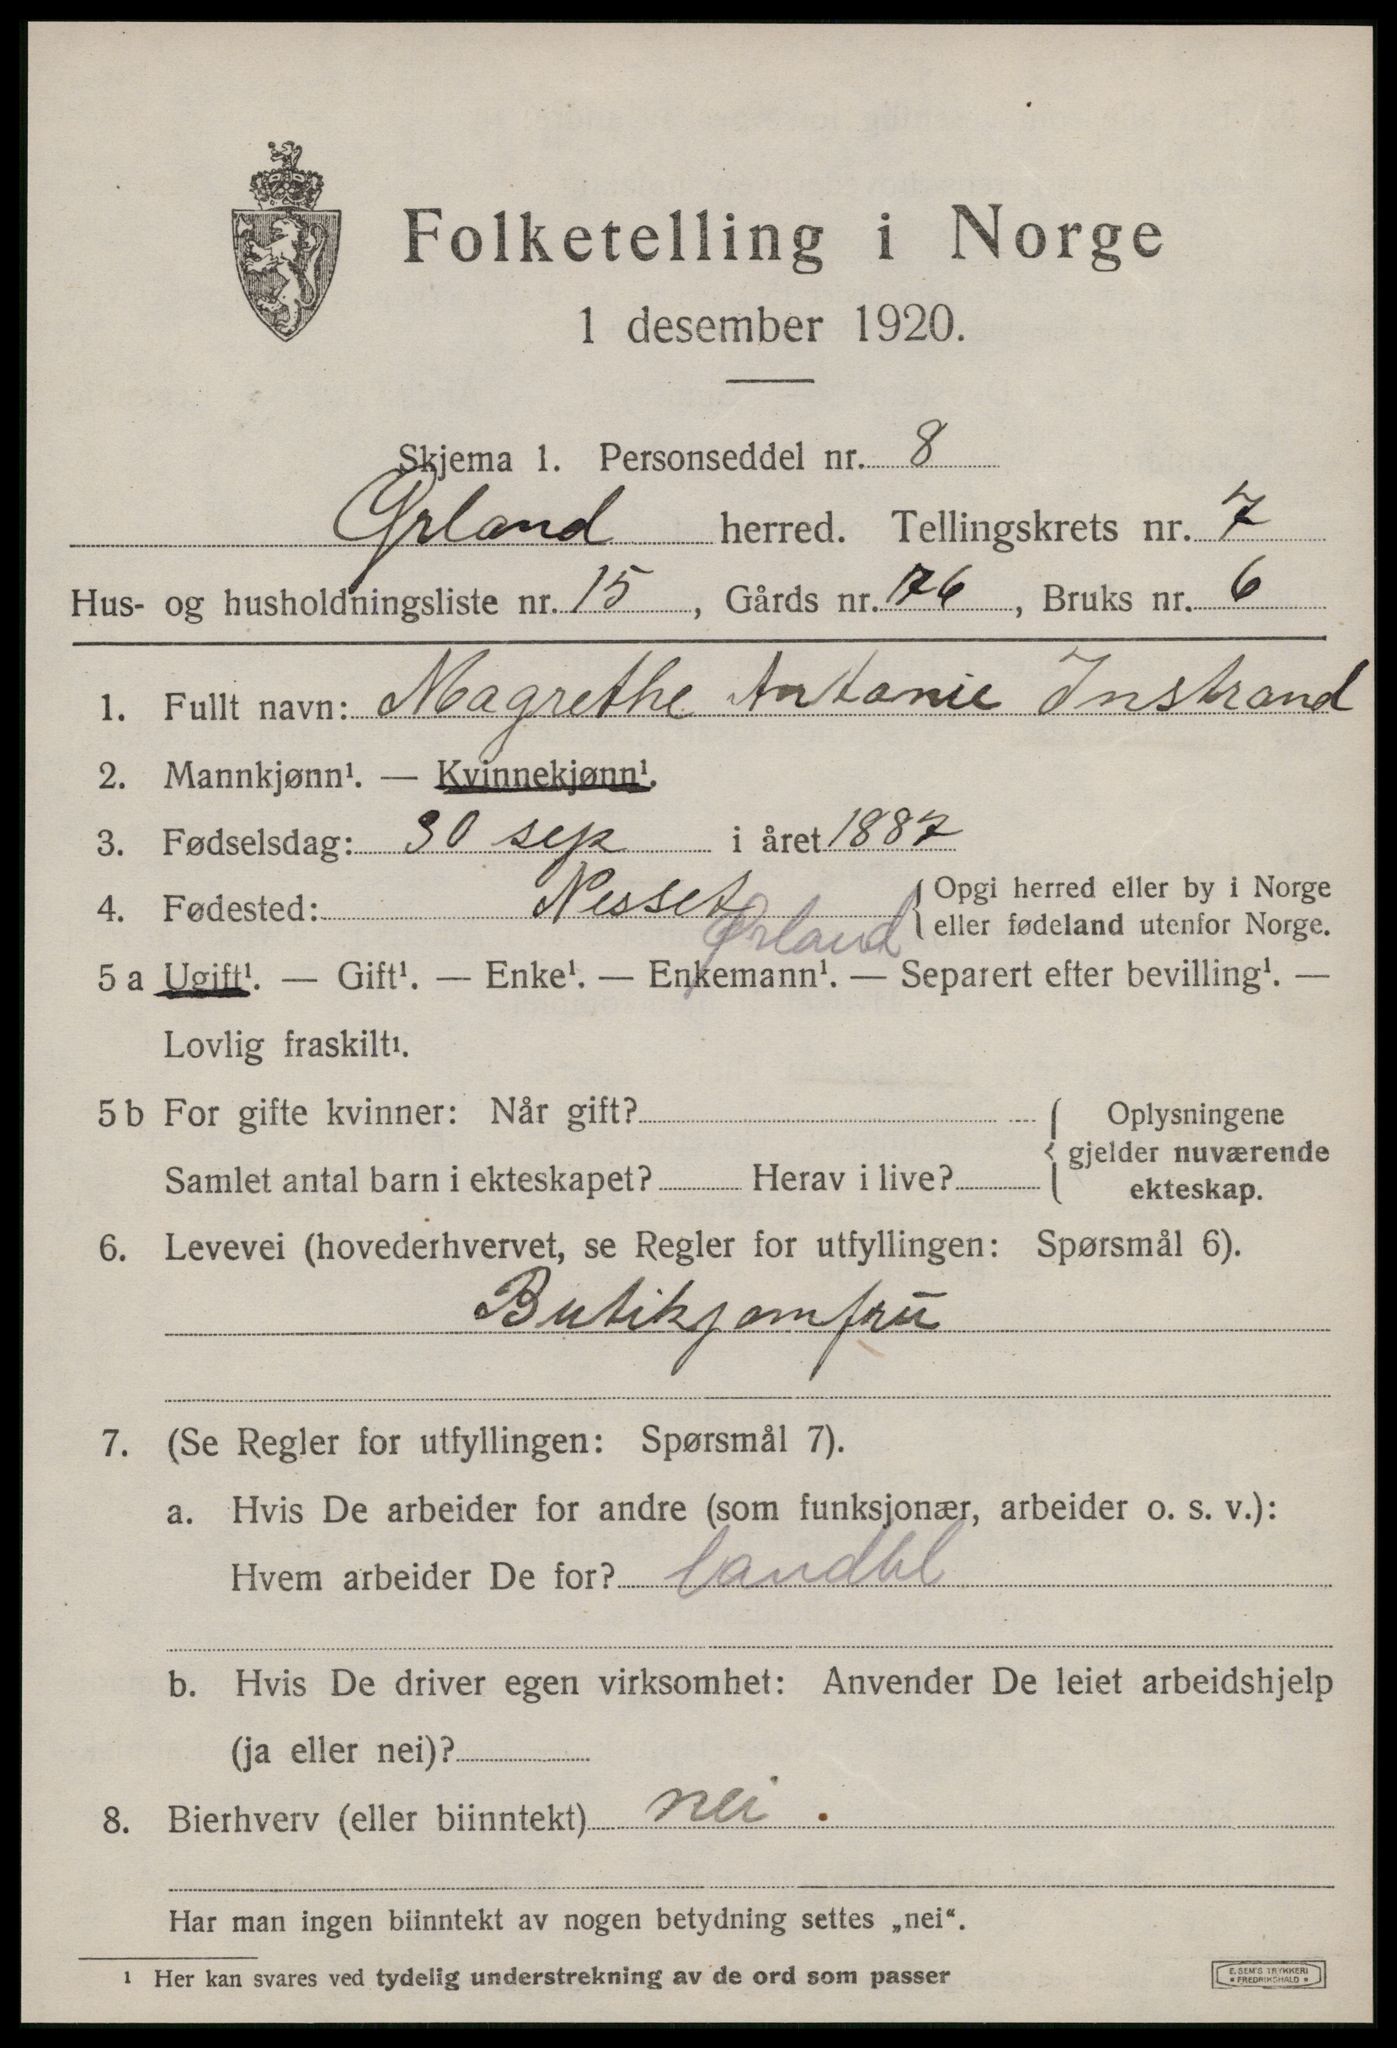 Folketelling i Norge
1 desember 1920.
Skjema 1. Personseddel nr. 8
Ørland herred. Tellingskrets nr. 7
Hus- og husholdningsliste nr. 15, Gårds nr. 176, Bruks nr. 6
1. Fullt navn: Magrethe Antonie Instrand
2. Mannkjønn¹. — Kvinnekjønn¹.
3. Fødselsdag: 30 sep i året 1887
4. Fødested: Nesset { Opgi herred eller by i Norge
Ørland eller fødeland utenfor Norge.
5 a Ugift¹. — Gift¹. — Enke¹. — Enkemann¹. — Separert efter bevilling¹. —
Lovlig fraskilt¹.
5 b For gifte kvinner: Når gift? { Oplysningene
gjelder nuværende
Samlet antal barn i ekteskapet? Herav i live? ekteskap.
6. Levevei (hovederhvervet, se Regler for utfyllingen: Spørsmål 6).
Butikjomfru
7. (Se Regler for utfyllingen: Spørsmål 7).
a. Hvis De arbeider for andre (som funksjonær, arbeider o. s. v.):
Hvem arbeider De for? landhl
b. Hvis De driver egen virksomhet: Anvender De leiet arbeidshjelp
(ja eller nei)?
8. Bierhverv (eller biinntekt) nei.
Har man ingen biinntekt av nogen betydning settes „nei“.
¹ Her kan svares ved tydelig understrekning av de ord som passer
E. SEM'S TRYKKERI
• FREDRIKSHALD •